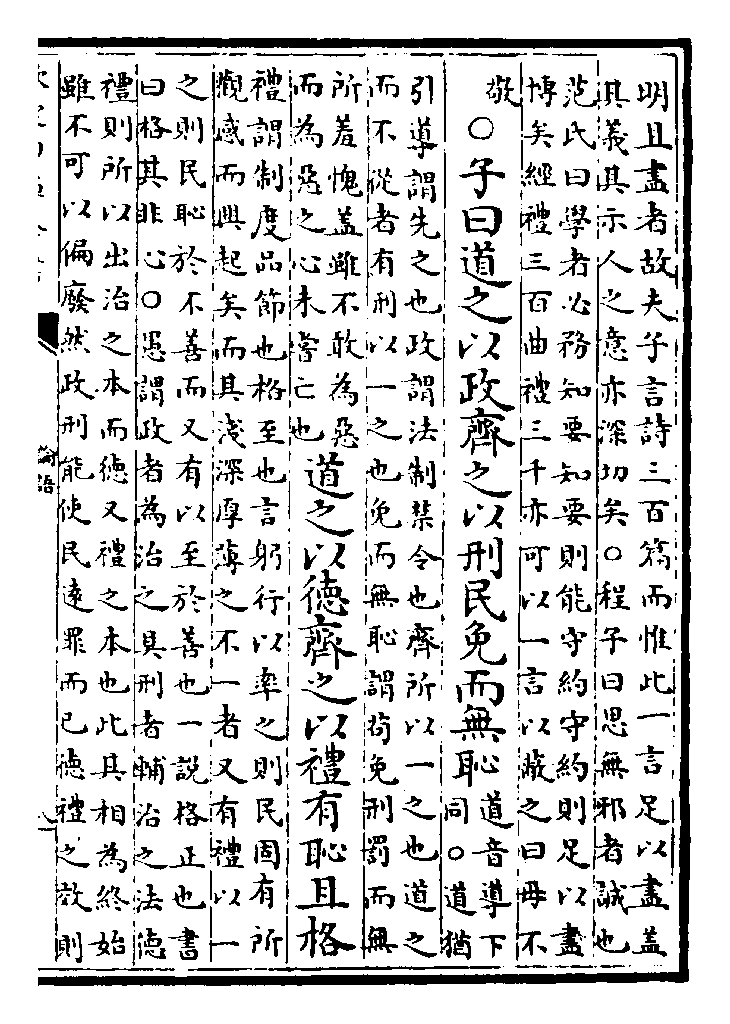 明且盡者故夫子言詩三百篇而惟此一言足以盡蓋
其義其示人之意亦深切矣○程子曰思無邪者誠也
范氏曰學者必務知要知要則能守約守約則足以盡
博矣經禮三百曲禮三千亦可以一言以蔽之曰毋不
敬
○子曰道之以政齊之以刑民免而無恥
道音導下
同○道猶
引導謂先之也政謂法制禁令也齊所以一之也道之
而不從者有刑以一之也免而無恥謂茍免刑罰而無
所羞愧蓋雖不敢為惡
而為惡之心未嘗亡也
道之以德齊之以禮有恥且格
禮謂制度品節也格至也言躬行以率之則民固有所
觀感而興起矣而其淺深厚薄之不一者又有禮以一
之則民恥於不善而又有以至於善也一說格正也書
曰格其非心○愚謂政者為治之具刑者輔治之法德
禮則所以出治之本而德又禮之本也此其相為終始
雖不可以偏廢然政刑能使民遠罪而已德禮之效則
論語
八